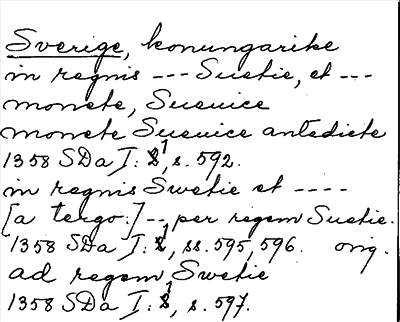 Sverige, konungarike
in regnis --- Suetie, et ---
monete, Sueuice
monete Sueuice antedicte
1358 SDa I: 1, s. 592.
in regnis Swetie et ----
[a tergo:] -- per regem Suetie.
1358 SDa I: 1, ss. 595, 596. orig.
ad regem Swetie
1358 SDa I: 1, s. 597.